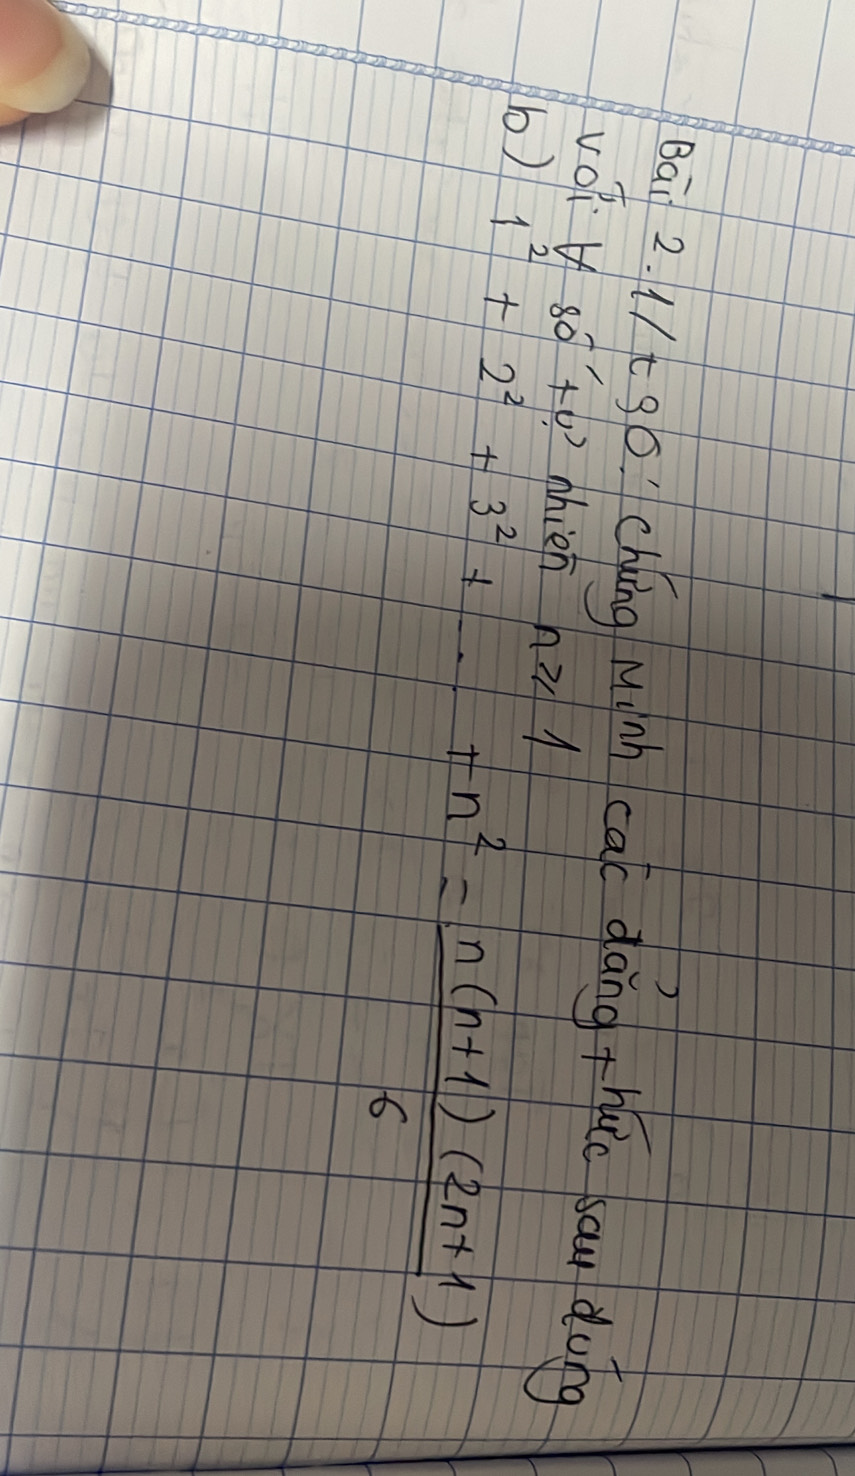 Bài 2.1/t 30: Chứng Minh các đẳng thức sau đúng
với ∀ số tự nhiên n ≥ 1
b) 1² + 2² + 3² + ... + n² = n(n+1)(2n+1)
6